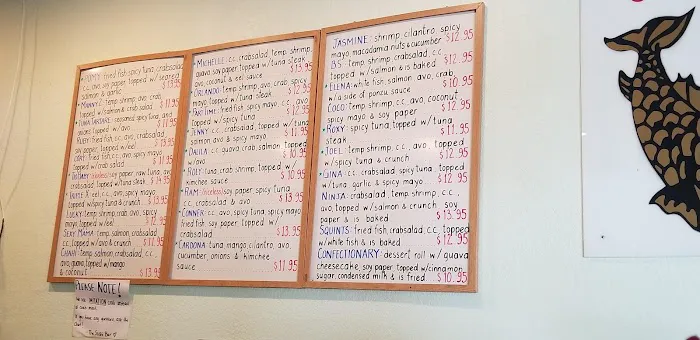 fried fish, spicy tuna, crabsalad
c.c, avo, spicy mayo, topped w/ seared
salmon & garlic $13.95
MANNY: temp shrimp, avo, crab,
topped w/ salmon & crab salad $11.95
TUNA TARTARE: seasoned spicy tuna, and
onions topped w/ avo $11.95
RUBY: fried fish, c.c, avo, crabsalad,
soy paper, topped w/ eel $13.95
fried fish, c.c, avo, spicy mayo
topped w/ crab salad $11.95
soy paper, raw tuna, avo,
crabsalad, topped w/ tuna steak $14.95
TRIPLE X: eel, c.c., avo, spicy mayo
topped w/ spicy tuna & crunch $13.95
LUCKY: temp shrimp, crab, avo, spicy
mayo topped w/ eel $12.95
SEXY MAMA: temp shrimp, crabsalad,
c.c, topped w/ avo & crunch $11.95
CHINA: temp shrimp, crabsalad, c.c,
avo, guava, topped w/ mango
& coconut $13.95
PLEASE NOTE!
MICHELLE: c.c, crabsalad, temp shrimp,
guava, soy paper, topped w/ tuna steak
avo, coconut & eel sauce $13.95
ORLANDO: temp shrimp, avo, crab, spicy
mayo, topped w/ tuna steak $12.95
PART TIME: fried fish, spicy mayo, c.c, avo
topped w/ spicy tuna $12.95
JENNY: c.c, crabsalad, topped w/ tuna
salmon avo & spicy mayo $11.95
DALILA: c.c, guava, crab, salmon topped
w/ avo $10.95
ROLY: tuna, crab, shrimp, topped w/
kimchee sauce $10.95
RAM: (riceless) soy paper, spicy tuna
crabsalad & avo $13.95
CONNER: c.c, avo, spicy tuna, spicy mayo
fried fish, soy paper, topped w/
crabsalad $13.95
CARDONA: tuna, mango, cilantro, avo,
cucumber, onions & kimchee
sauce $11.95
JASMINE: shrimp, cilantro, spicy
mayo, macadamia nuts & cucumber $12.95
B5: temp shrimp, crabsalad, c.c,
topped w/ salmon & is baked $12.95
ELENA: white fish, salmon, avo, crab,
w/ a side of ponzu sauce $10.95
COCO: temp shrimp, c.c, avo, coconut,
spicy mayo & soy paper $12.95
ROXY: spicy tuna, topped w/ tuna
steak $11.95
JOEL: temp shrimp, c.c, avo, topped
w/ spicy tuna & crunch $12.95
GINA: c.c, crabsalad, spicy tuna, topped
w/ tuna, garlic & spicy mayo $12.95
NINJA: crabsalad, temp shrimp, c.c,
avo, topped w/ salmon & crunch soy
paper & is baked $13.95
SQUINTS: fried fish, crabsalad, c.c, topped
w/ white fish & is baked $12.95
CONFECTIONARY: dessert roll w/ guava
cheesecake, soy paper, topped w/ cinnamon
sugar, condensed milk & is fried $10.95